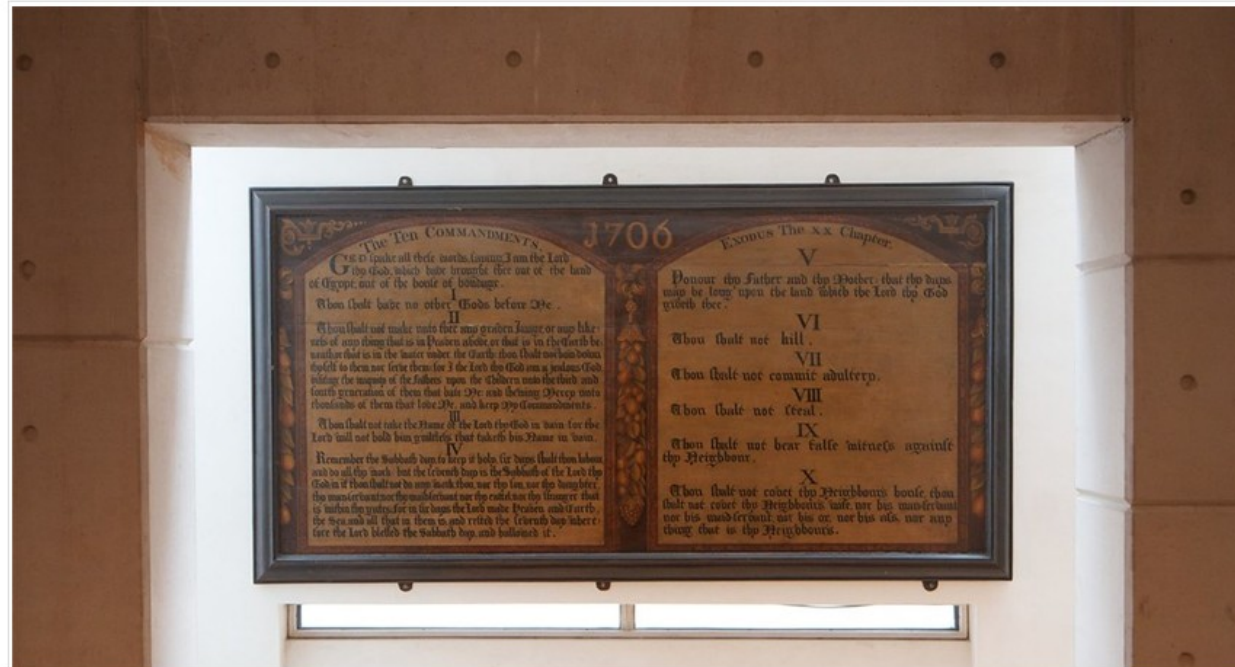 The Ten Commandments.
GOD spake all these words, saying, I am the Lord
thy God, which have brought thee out of the land
of Egypt, out of the house of bondage.
I
Thou shalt have no other Gods before Me.
II
Thou shalt not make unto thee any graven Image, or any like-
ness of any thing that is in Heaven above, or that is in the Earth be-
neath or that is in the water under the Earth: thou shalt not bow down
thyself to them nor serve them: for I the Lord thy God am a jealous God,
visiting the iniquity of the Fathers upon the Childern unto the third and
fourth generation of them that hate Me: and shewing Mercy unto
thousands of them that love Me, and keep My Commandments.
III
Thou shalt not take the Name of the Lord thy God in vain: for the
Lord will not hold him guiltless that taketh his Name in vain.
IV
Remember the Sabbath day, to keep it holy, six days shalt thou labour,
and do all thy work: but the seventh day is the Sabbath of the Lord thy
God: in it thou shalt not do any work, thou, nor thy son, nor thy daughter,
thy man-servant, nor thy maid servant nor thy cattel, nor thy stranger that
is within thy gates: for in six days the Lord made Heaven and Earth,
the Sea, and all that in them is, and rested the seventh day: where-
fore the Lord blessed the Sabbath day, and hallowed it.
1706
Exodus The XX Chapter.
V
Honour thy Father and thy Mother: that thy days
may be long upon the land which the Lord thy God
giveth thee.
VI
Thou shalt not kill.
VII
Thou shalt not commit adultery.
VIII
Thou shalt not steal.
IX
Thou shalt not bear false witness against
thy Neighbour.
X
Thou shalt not covet thy Neighbours house, thou
shalt not covet thy Neighbours wife, nor his man-servant
nor his maid-servant, nor his ox, nor his ass, nor any
thing that is thy Neighbours.